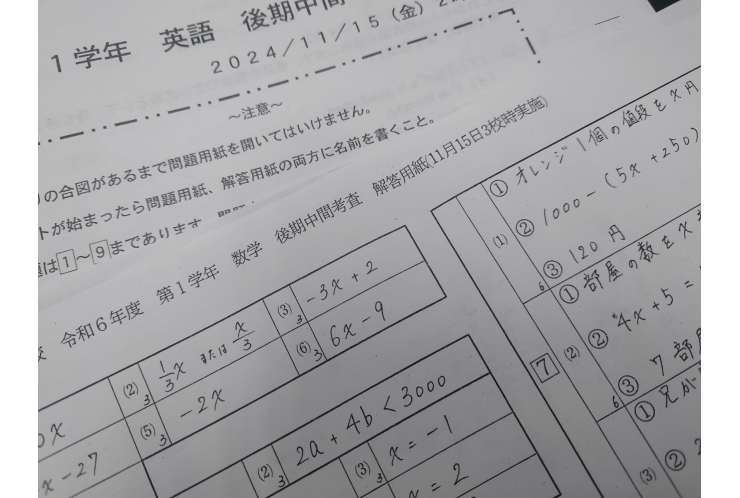 1学年 英語 後期中間
2024/11/15(金)
～注意～
の合図があるまで問題用紙を開いてはいけません。
トが始まったら問題用紙、解答用紙の両方に名前を書くこと。
は1～9まであります
令和6年度 第1学年 数学 後期中間考査 解答用紙(11月15日3校時実施)
(2) 3 1/3 x または x/3
(3) 3 -3x+2
x
(5) 3 -2x
(6) 3 6x-9
x-27
(2) 3 2a+4b<3000
(3) 3 x=-1
x=2
7
(1) 6
① オレンジ1個の値段をx円
② 1000-(5x+250)
③ 120円
(2) 6
① 部屋の数をx
② 4x+5=
③ 7部屋
(3)
① 兄が
② 2